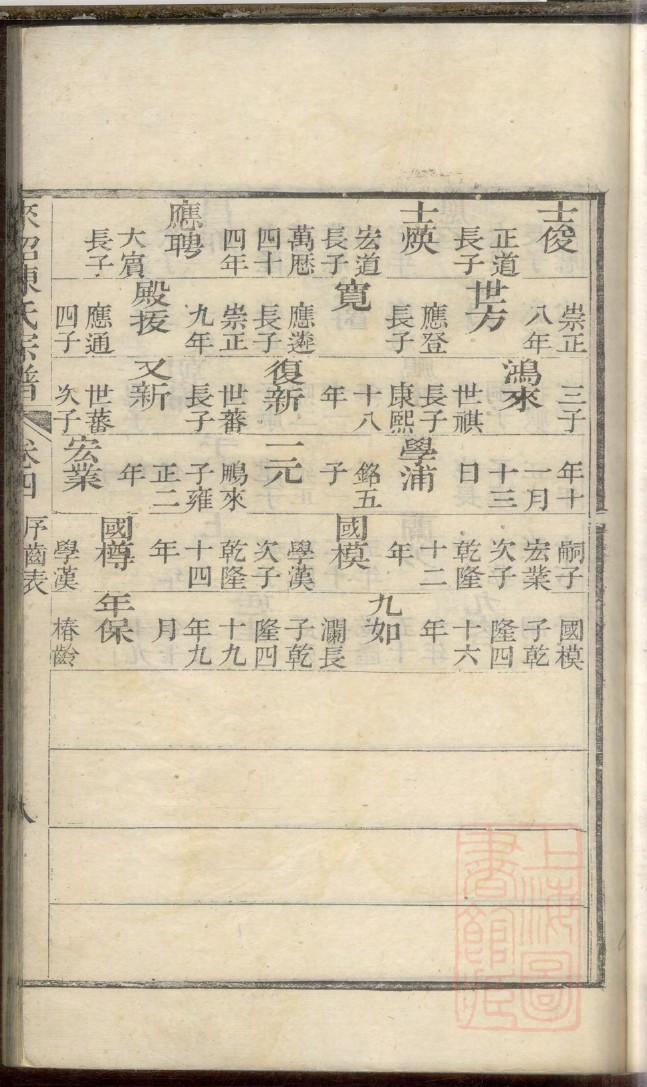 士俊
正道
長子
士煐
宏道
長子
萬厯
四十
四年
應聘
大賓
長子
崇正
八年
世方
應登
長子
寬
應遴
長子
崇正
九年
殿
應通
四子
三子
鴻來
世祺
長子
康熙
十八
年
復新
世蕃
長子
又新
世蕃
次子
年十
一月
十三
日
學浦
銘五
子
二元
鵬來
子雍
正二
年
宏業
嗣子
宏業
次子
乾隆
十二
年
國模
學漢
次子
乾隆
十四
年
國樽
學漢
國模
子乾
隆四
十六
年
九如
瀾長
子乾
隆四
十九
年九
月
年保
椿齡
來紹陳氏宗譜
卷四
序齒表
八
上海圖
書館藏